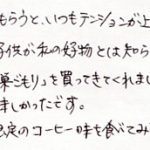 もらうと、いつもテンションが上
子供が私の好物とは知ら
巣ごもり」を買ってきてくれまし
ましかったです。
定のコーヒー味も食べてみ